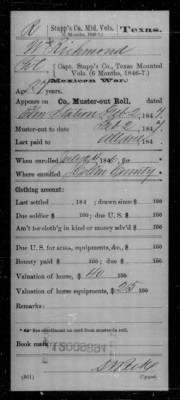 R Stapp's Co. Mtd. Vols. Texas.
(6 Months, 1846-7.)
Wm Richmond
Pvt, Capt. Stapp's Co., Texas Mounted
Vols. (6 Months, 1846-7.)
(Mexican War.)
Age years.
Appears on
Co. Muster-out Roll, dated
Station, Feb 2, 1847.
Muster-out to date Feb 2, 1847.
Last paid to , 184 .
When enrolled , 184 .
Where enrolled County
Clothing account:
Last settled , 184 ; drawn since $ 100
Due soldier $ 100; due U. S. $ 100
Am't for cloth'g in kind or money adv'd $ 100
Due U. S. for arms, equipments, &c., $ 100
Bounty paid $ 100; due $ 100
Valuation of horse, $ 40 100
Valuation of horse equipments, $ 25 100
Remarks:
Book mark:
(861) Copyist.